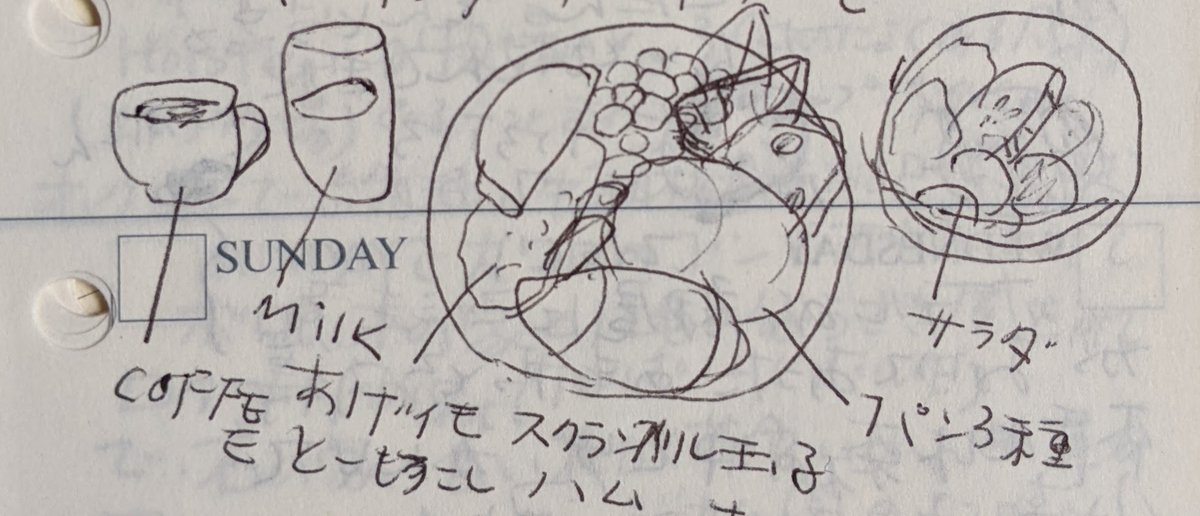 SUNDAY
Milk
サラダ
COFFEE
あげイモ
とーもろこし
スクランブル玉子
ハム
パン3種